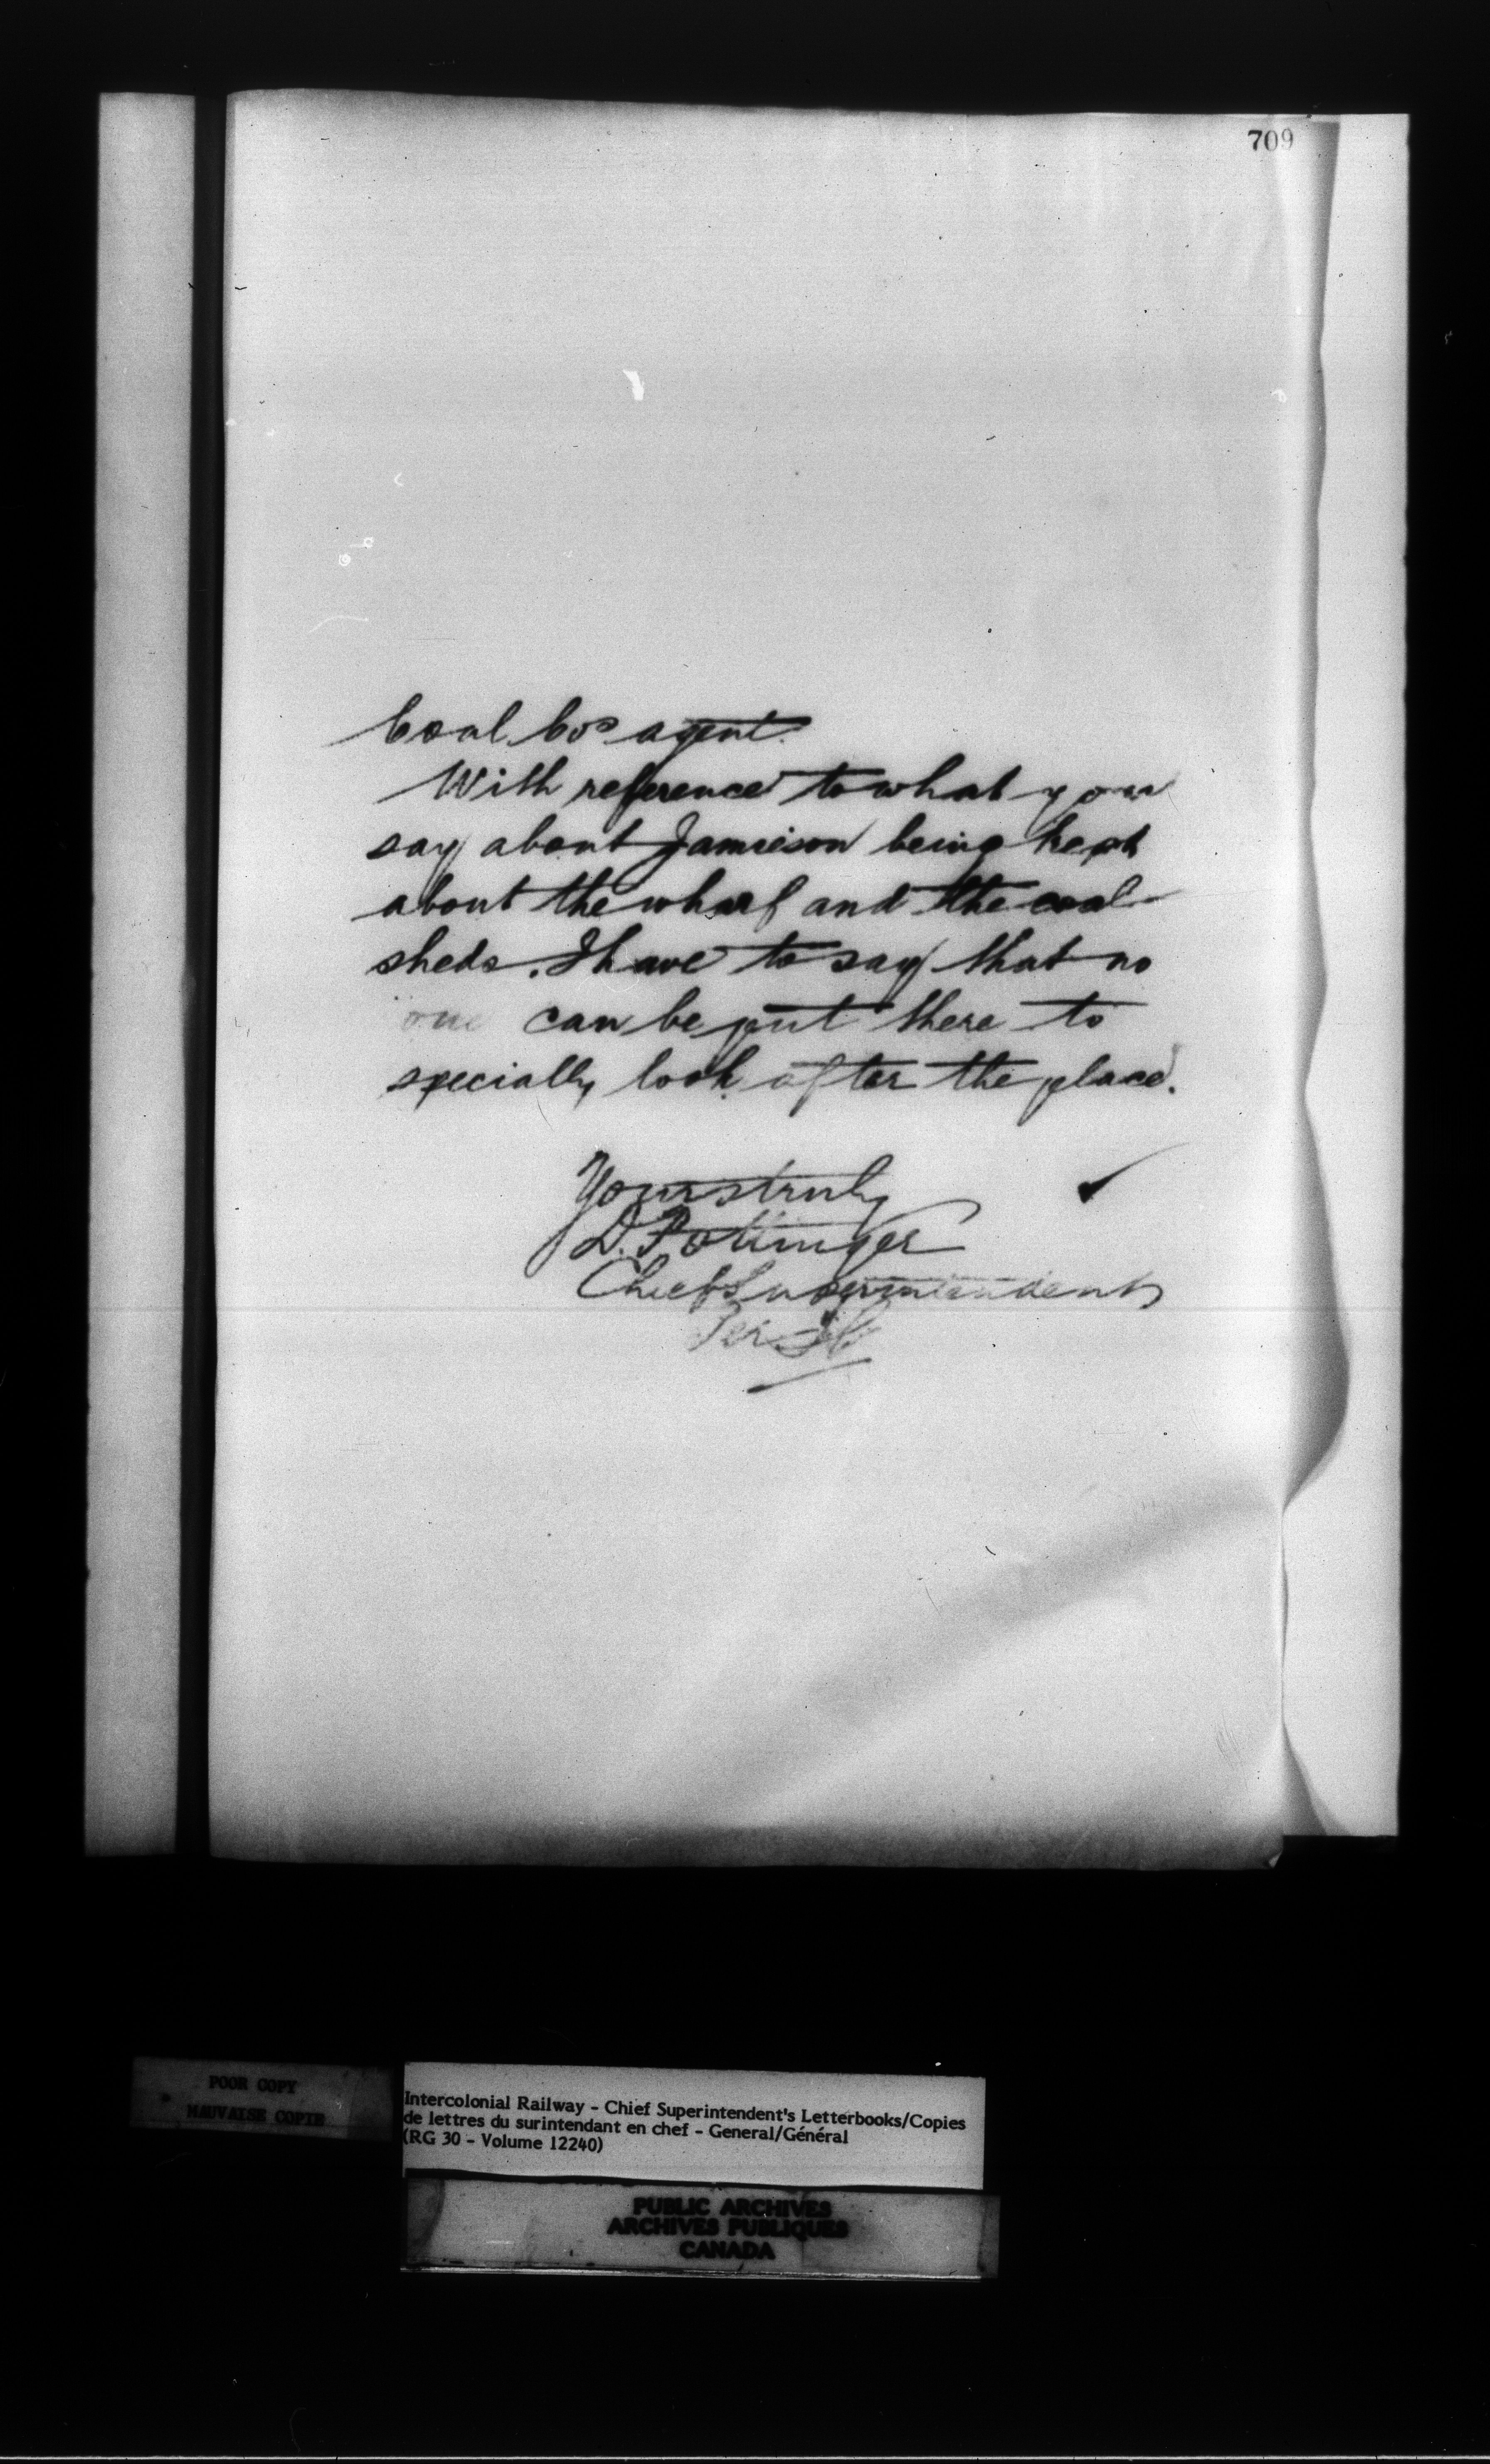 709
Coal Co's agent.
With reference to what you
say about Jamieson being kept
about the wharf and the coal
sheds. I have to say that no
one can be put there to
specially look after the place.
Yours truly
D. Pottinger
Chief Superintendent
Per
POOR COPY
MAUVAISE COPIE
Intercolonial Railway - Chief Superintendent's Letterbooks/Copies
de lettres du surintendant en chef - General/Général
(RG 30 - Volume 12240)
PUBLIC ARCHIVES
ARCHIVES PUBLIQUES
CANADA